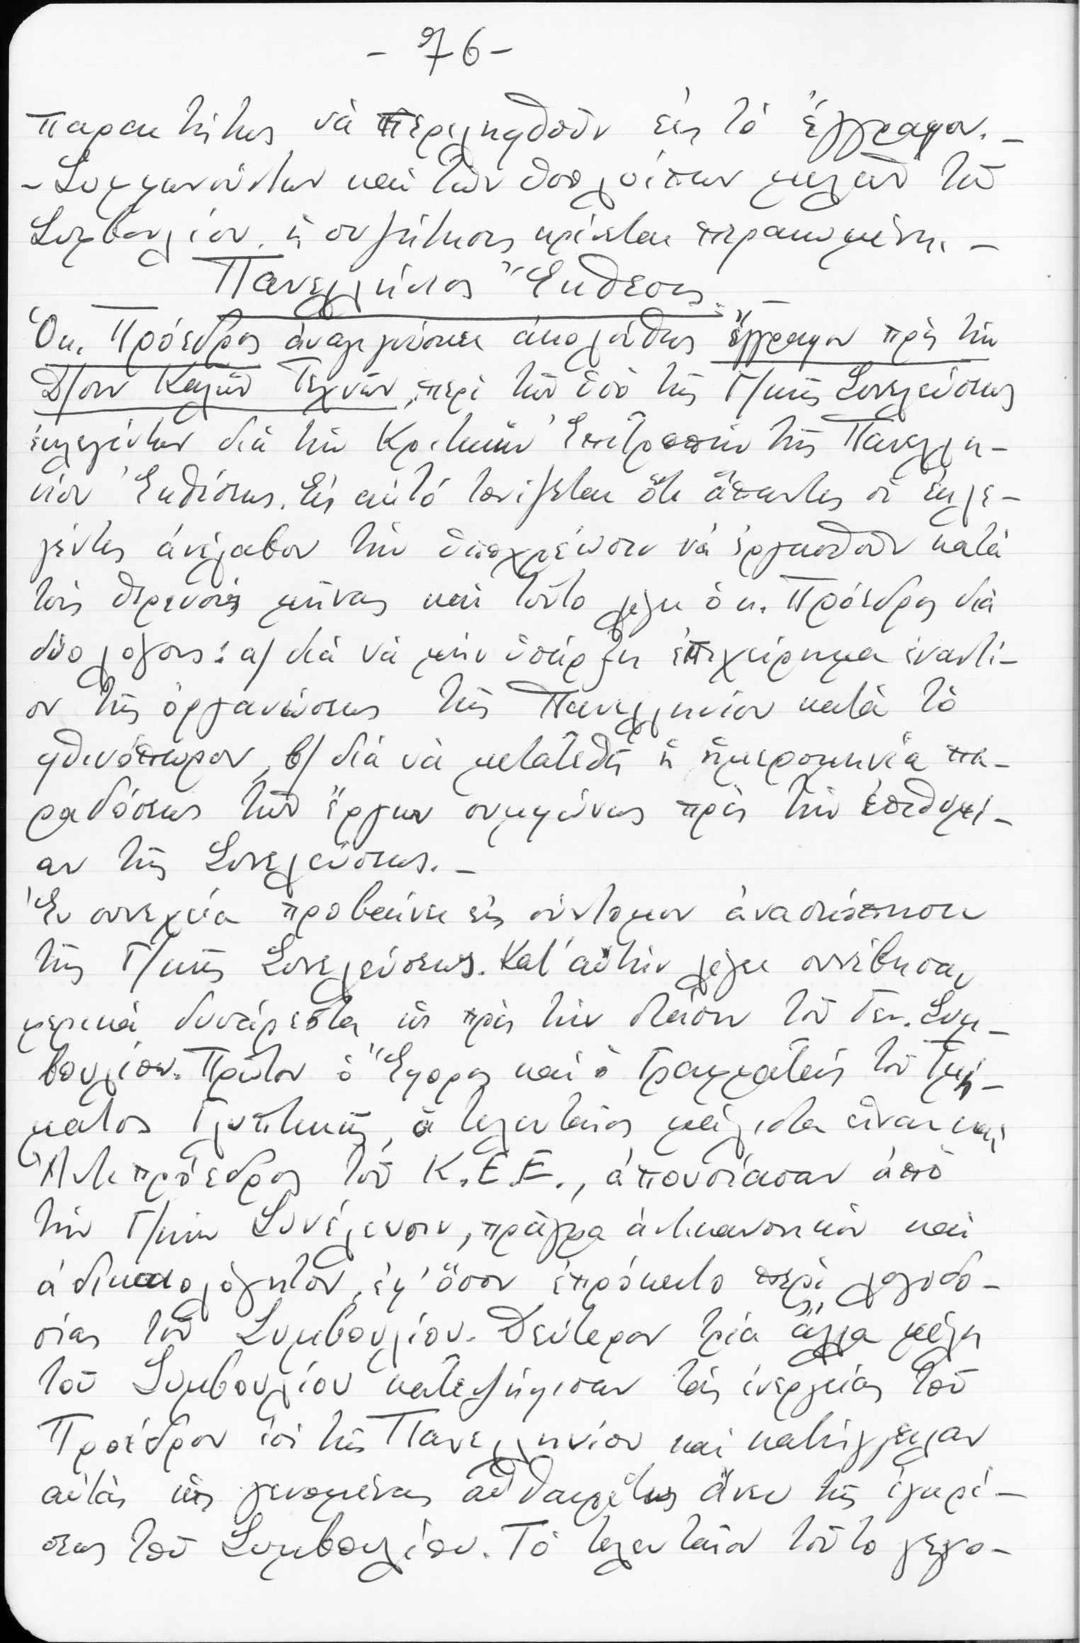 - 76 -
παραιτήτως νὰ περιληφθοῦν εἰς τὸ ἔγγραφον. -
- Συμφωνούντων καὶ τῶν ὑπολοίπων μελῶν τοῦ
Συμβουλίου, ἡ συζήτησις κρίνεται περατωμένη. -
Πανελλήνιος Ἔκθεσις. -
Ὁ κ. Πρόεδρος ἀναγιγνώσκει ἀκολούθως ἔγγραφον πρὸς τὴν
Δ/σιν Καλῶν Τεχνῶν, περὶ τῶν ὑπὸ τῆς Γ/κῆς Συνελεύσεως
ἐκλεγέντων διὰ τὴν Κριτικὴν Ἐπιτροπὴν τῆς Πανελλη-
νίου Ἐκθέσεως. Εἰς αὐτό τονίζεται ὅτι ἅπαντες οἱ ἐκλε-
γέντες ἀνέλαβον τὴν ὑποχρέωσιν νὰ ἐργασθοῦν κατὰ
τοὺς θερινοὺς μῆνας καὶ τοῦτο λέγει ὁ κ. Πρόεδρος διὰ
δύο λόγους: α/ διὰ νὰ μὴν ὑπάρξη ἐπιχείρημα ἐναντί-
ον τῆς ὀργανώσεως τῆς Πανελληνίου κατὰ τὸ
φθινόπωρον, β/ διὰ νὰ μετατεθῆ ἡ ἡμερομηνία πα-
ραδόσεως τῶν ἔργων συμφώνως πρὸς τὴν ἐπιθυμί-
αν τῆς Συνελεύσεως. -
Ἐν συνεχεία προβαίνει εἰς σύντομον ἀνασκόπησιν
τῆς Γ/κῆς Συνελεύσεως. Κατ' αὐτὴν λέγει συνέβησαν
μερικὰ δυσάρεστα ὡς πρὸς τὴν στάσιν τοῦ Γεν. Συμ-
βουλίου. Πρῶτον ὁ Ἔφορος καὶ ὁ Γραμματεὺς τοῦ Τμή-
ματος Γλυπτικῆς, ὁ τελευταῖος μάλιστα εἶναι καὶ
Ἀντιπρόεδρος τοῦ Κ.Ε.Ε., ἀπουσίασαν ἀπὸ
τὴν Γ/κὴν Συνέλευσιν, πρᾶγμα ἀντικανονικὸν καὶ
ἀδικαιολόγητον, ἐφ' ὅσον ἐπρόκειτο περὶ λογοδο-
σίας τοῦ Συμβουλίου. Δεύτερον τρία ἄλλα μέλη
τοῦ Συμβουλίου κατεψήφισαν τὰς ἐνεργείας τοῦ
Προέδρου ἐπὶ τῆς Πανελληνίου καὶ κατήγγειλαν
αὐτὰς ὡς γενομένας αὐθαιρέτως ἄνευ τῆς ἐγκρί-
σεως τοῦ Συμβουλίου. Τὸ τελευταῖον τοῦτο γεγο-